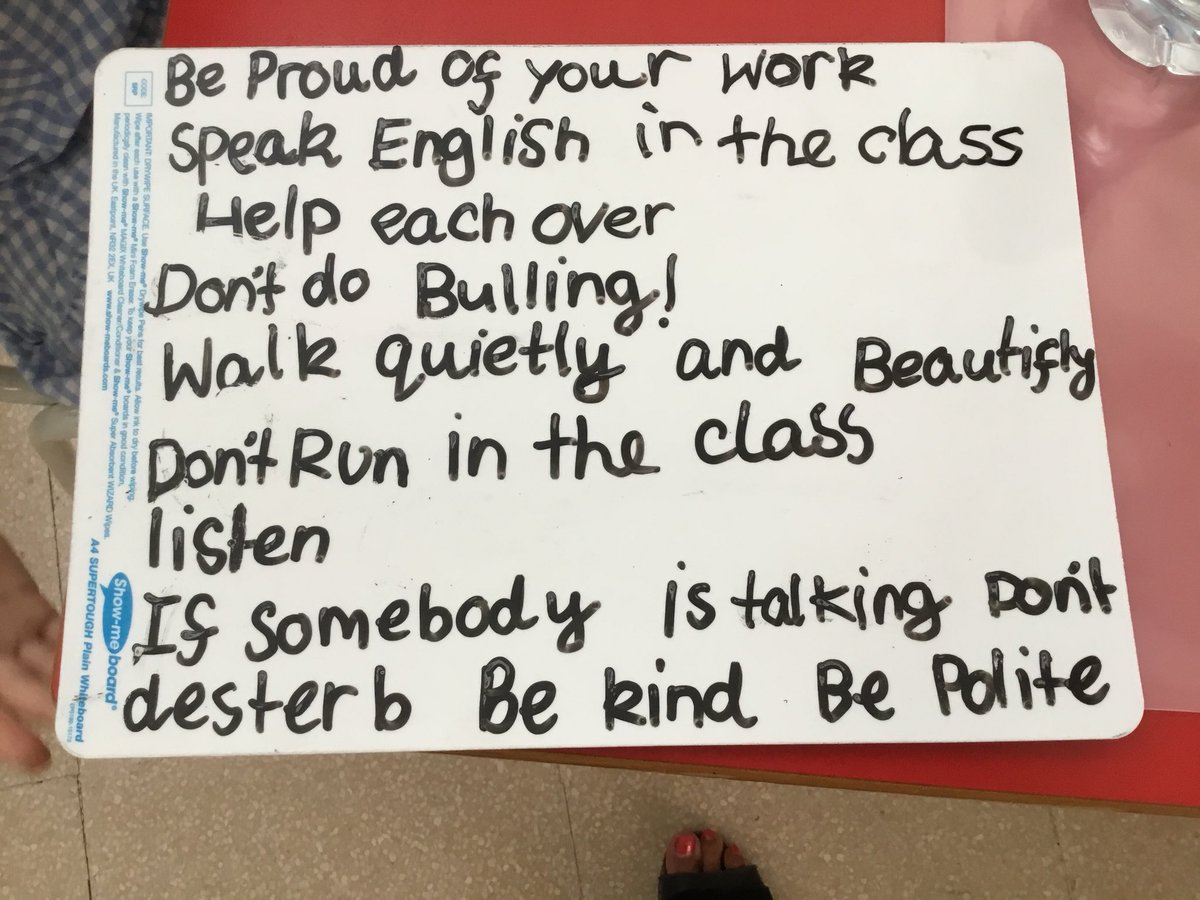 Be Proud of your work
Speak English in the class
Help each over
Don't do Bulling!
Walk quietly and Beautifly
Don't Run in the class
listen
If somebody is talking Don't
desterb Be kind Be Polite
CODE: SRP
IMPORTANT DRYWIPE SURFACE. Use Show-me® Drywipe Pens for best results. Allow ink to dry before wiping.
Wipe after each use with a Show-me® Mini Foam Eraser. To keep your Show-me® boards in good condition,
periodically clean with Show-me® MAGIX Whiteboard Cleaner/Conditioner & Show-me® Super Absorbent WIZARD Wipes.
Manufactured in the UK. Eastpoint, NR32 2EX, UK www.show-meboards.com
Show-me board®
A4 SUPERTOUGH Plain Whiteboard